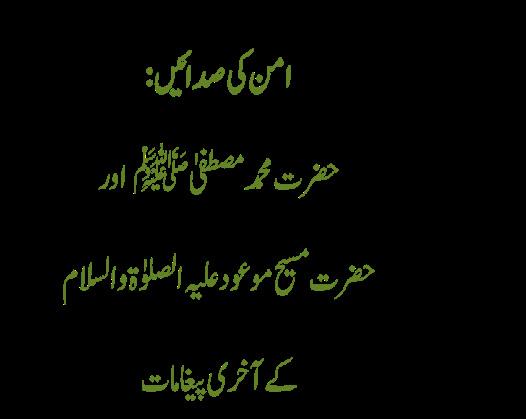 امن کی صدائیں:
حضرت محمد مصطفیٰ ﷺ اور
حضرت مسیح موعود علیہ الصلوٰۃ والسلام
کے آخری پیغامات